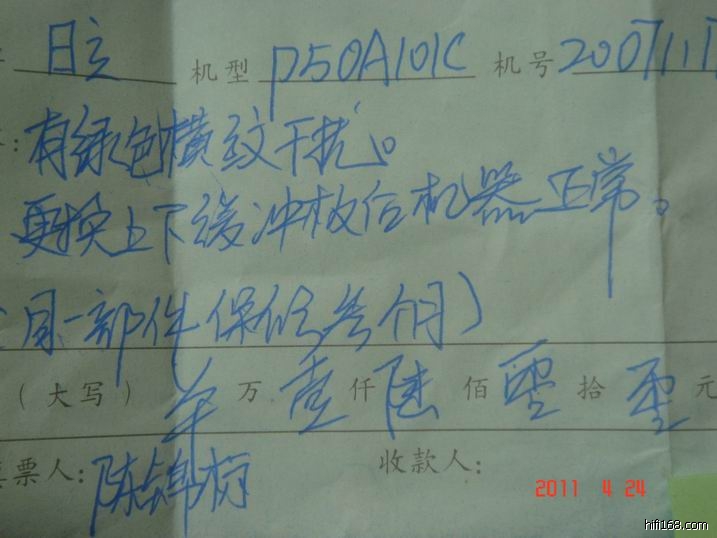 日立 机型 P50A101C 机号 2007111
有绿色横纹干扰。
更换上下缓冲板后机器正常。
同一部件保修叁个月)
(大写) 万 壹 仟 陆 佰 零 拾 零 元
票人: 陈锦 收款人:
2011 4 24
hifi168.com